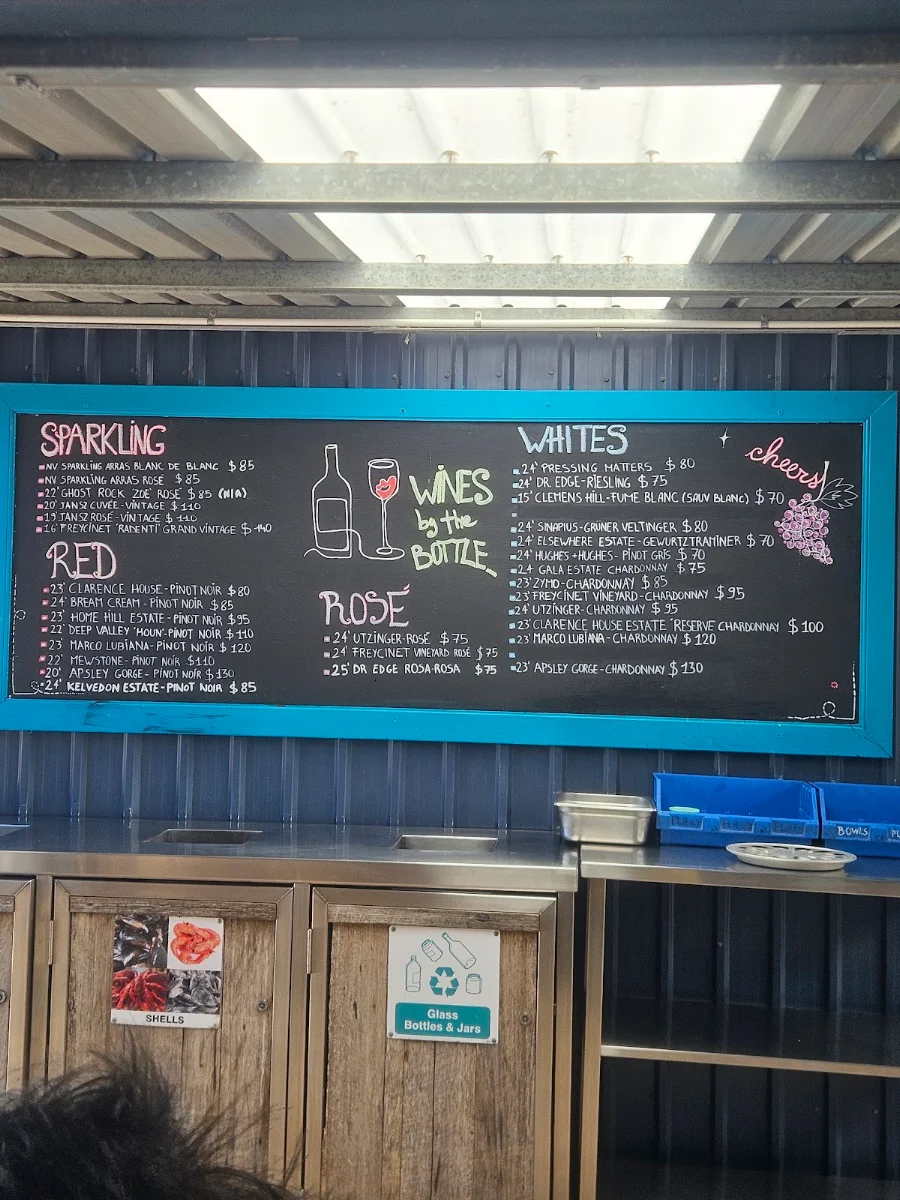 SPARKLING
NV SPARKLING ARRAS BLANC DE BLANC $85
NV SPARKLING ARRAS ROSÉ $85
22' GHOST ROCK ZOE' ROSÉ $85 (N/A)
20' JANSZ CUVÉE-VINTAGE $110
19' JANSZ ROSÉ-VINTAGE $110
16' FREYCINET 'RADENTI' GRAND VINTAGE $140
RED
23' CLARENCE HOUSE-PINOT NOIR $80
24' BREAM CREAM-PINOT NOIR $85
23' HOME HILL ESTATE-PINOT NOIR $95
22' DEEP VALLEY 'HOUN'-PINOT NOIR $110
23' MARCO LUBIANA-PINOT NOIR $120
22' MEWSTONE-PINOT NOIR $110
20' APSLEY GORGE-PINOT NOIR $130
24' KELVEDON ESTATE-PINOT NOIR $85
WINES
by the
BOTTLE
ROSÉ
24' UTZINGER-ROSÉ $75
24' FREYCINET VINEYARD ROSÉ $75
25' DR EDGE ROSA-ROSA $75
WHITES
24' PRESSING MATTERS $80
24' DR. EDGE-RIESLING $75
15' CLEMENS HILL-FUME BLANC (SAUV BLANC) $70
24' SINAPIUS-GRÜNER VELTINGER $80
24' ELSEWHERE ESTATE-GEWURTZTRAMINER $70
24' HUGHES+HUGHES-PINOT GRIS $70
24' GALA ESTATE CHARDONNAY $75
23' ZYMO-CHARDONNAY $85
23' FREYCINET VINEYARD-CHARDONNAY $95
24' UTZINGER-CHARDONNAY $95
23' CLARENCE HOUSE ESTATE 'RESERVE CHARDONNAY $100
23' MARCO LUBIANA-CHARDONNAY $120
23' APSLEY GORGE-CHARDONNAY $130
cheers!
BOWLS
SHELLS
Glass
Bottles & Jars